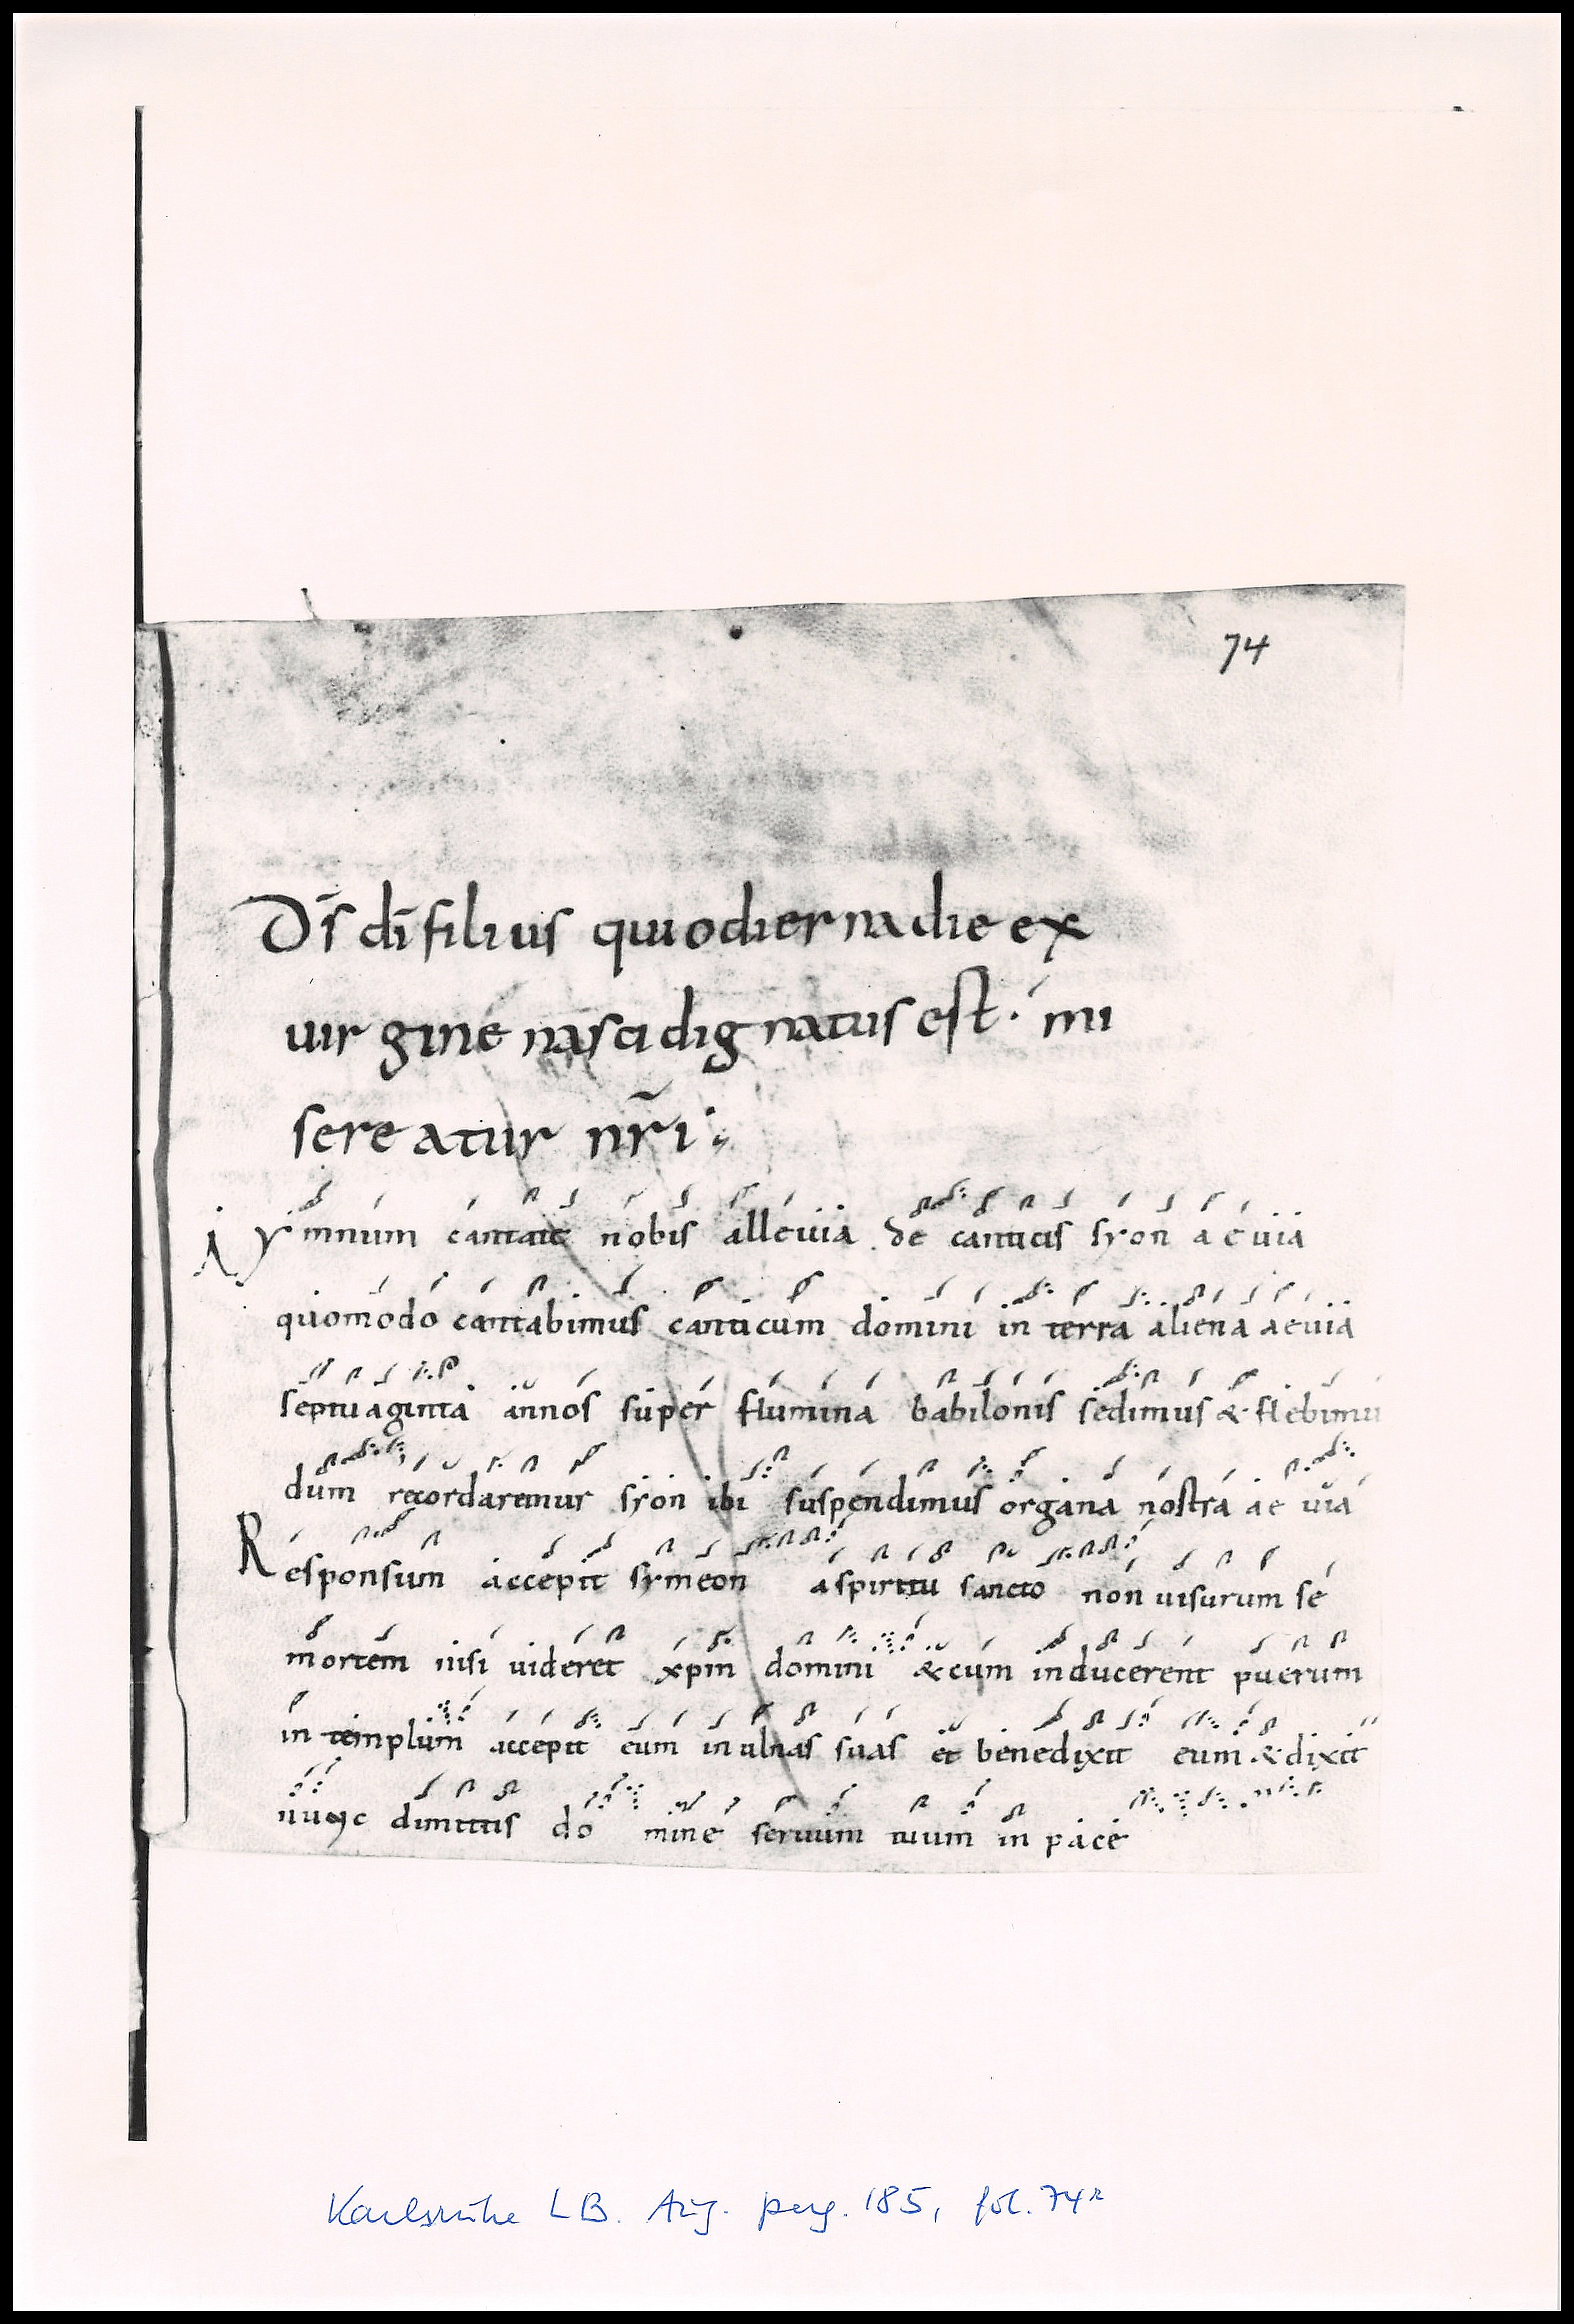 74
Dn̄s dī filius qui odierna die ex
uirgine nasci dignatus est · mi
sereatur nr̄i ;
Ymnum cantate nobis alleuia de canticis syon aeuia
quomodo cantabimus canticum domini in terra aliena aeuia
septuaginta annos super flumina babilonis sedimus & flebimu
dum recordaremur syon ibi suspendimus organa nostra aeuia
Responsum accepit symeon a spiritu sancto non uisurum se
mortem nisi uideret xp̄m domini & cum inducerent puerum
in templum accepit eum in ulnas suas et benedixit eum & dixit
nunc dimittis domine seruum tuum in pace
Karlsruhe LB. Aug. perg. 185, fol. 74r